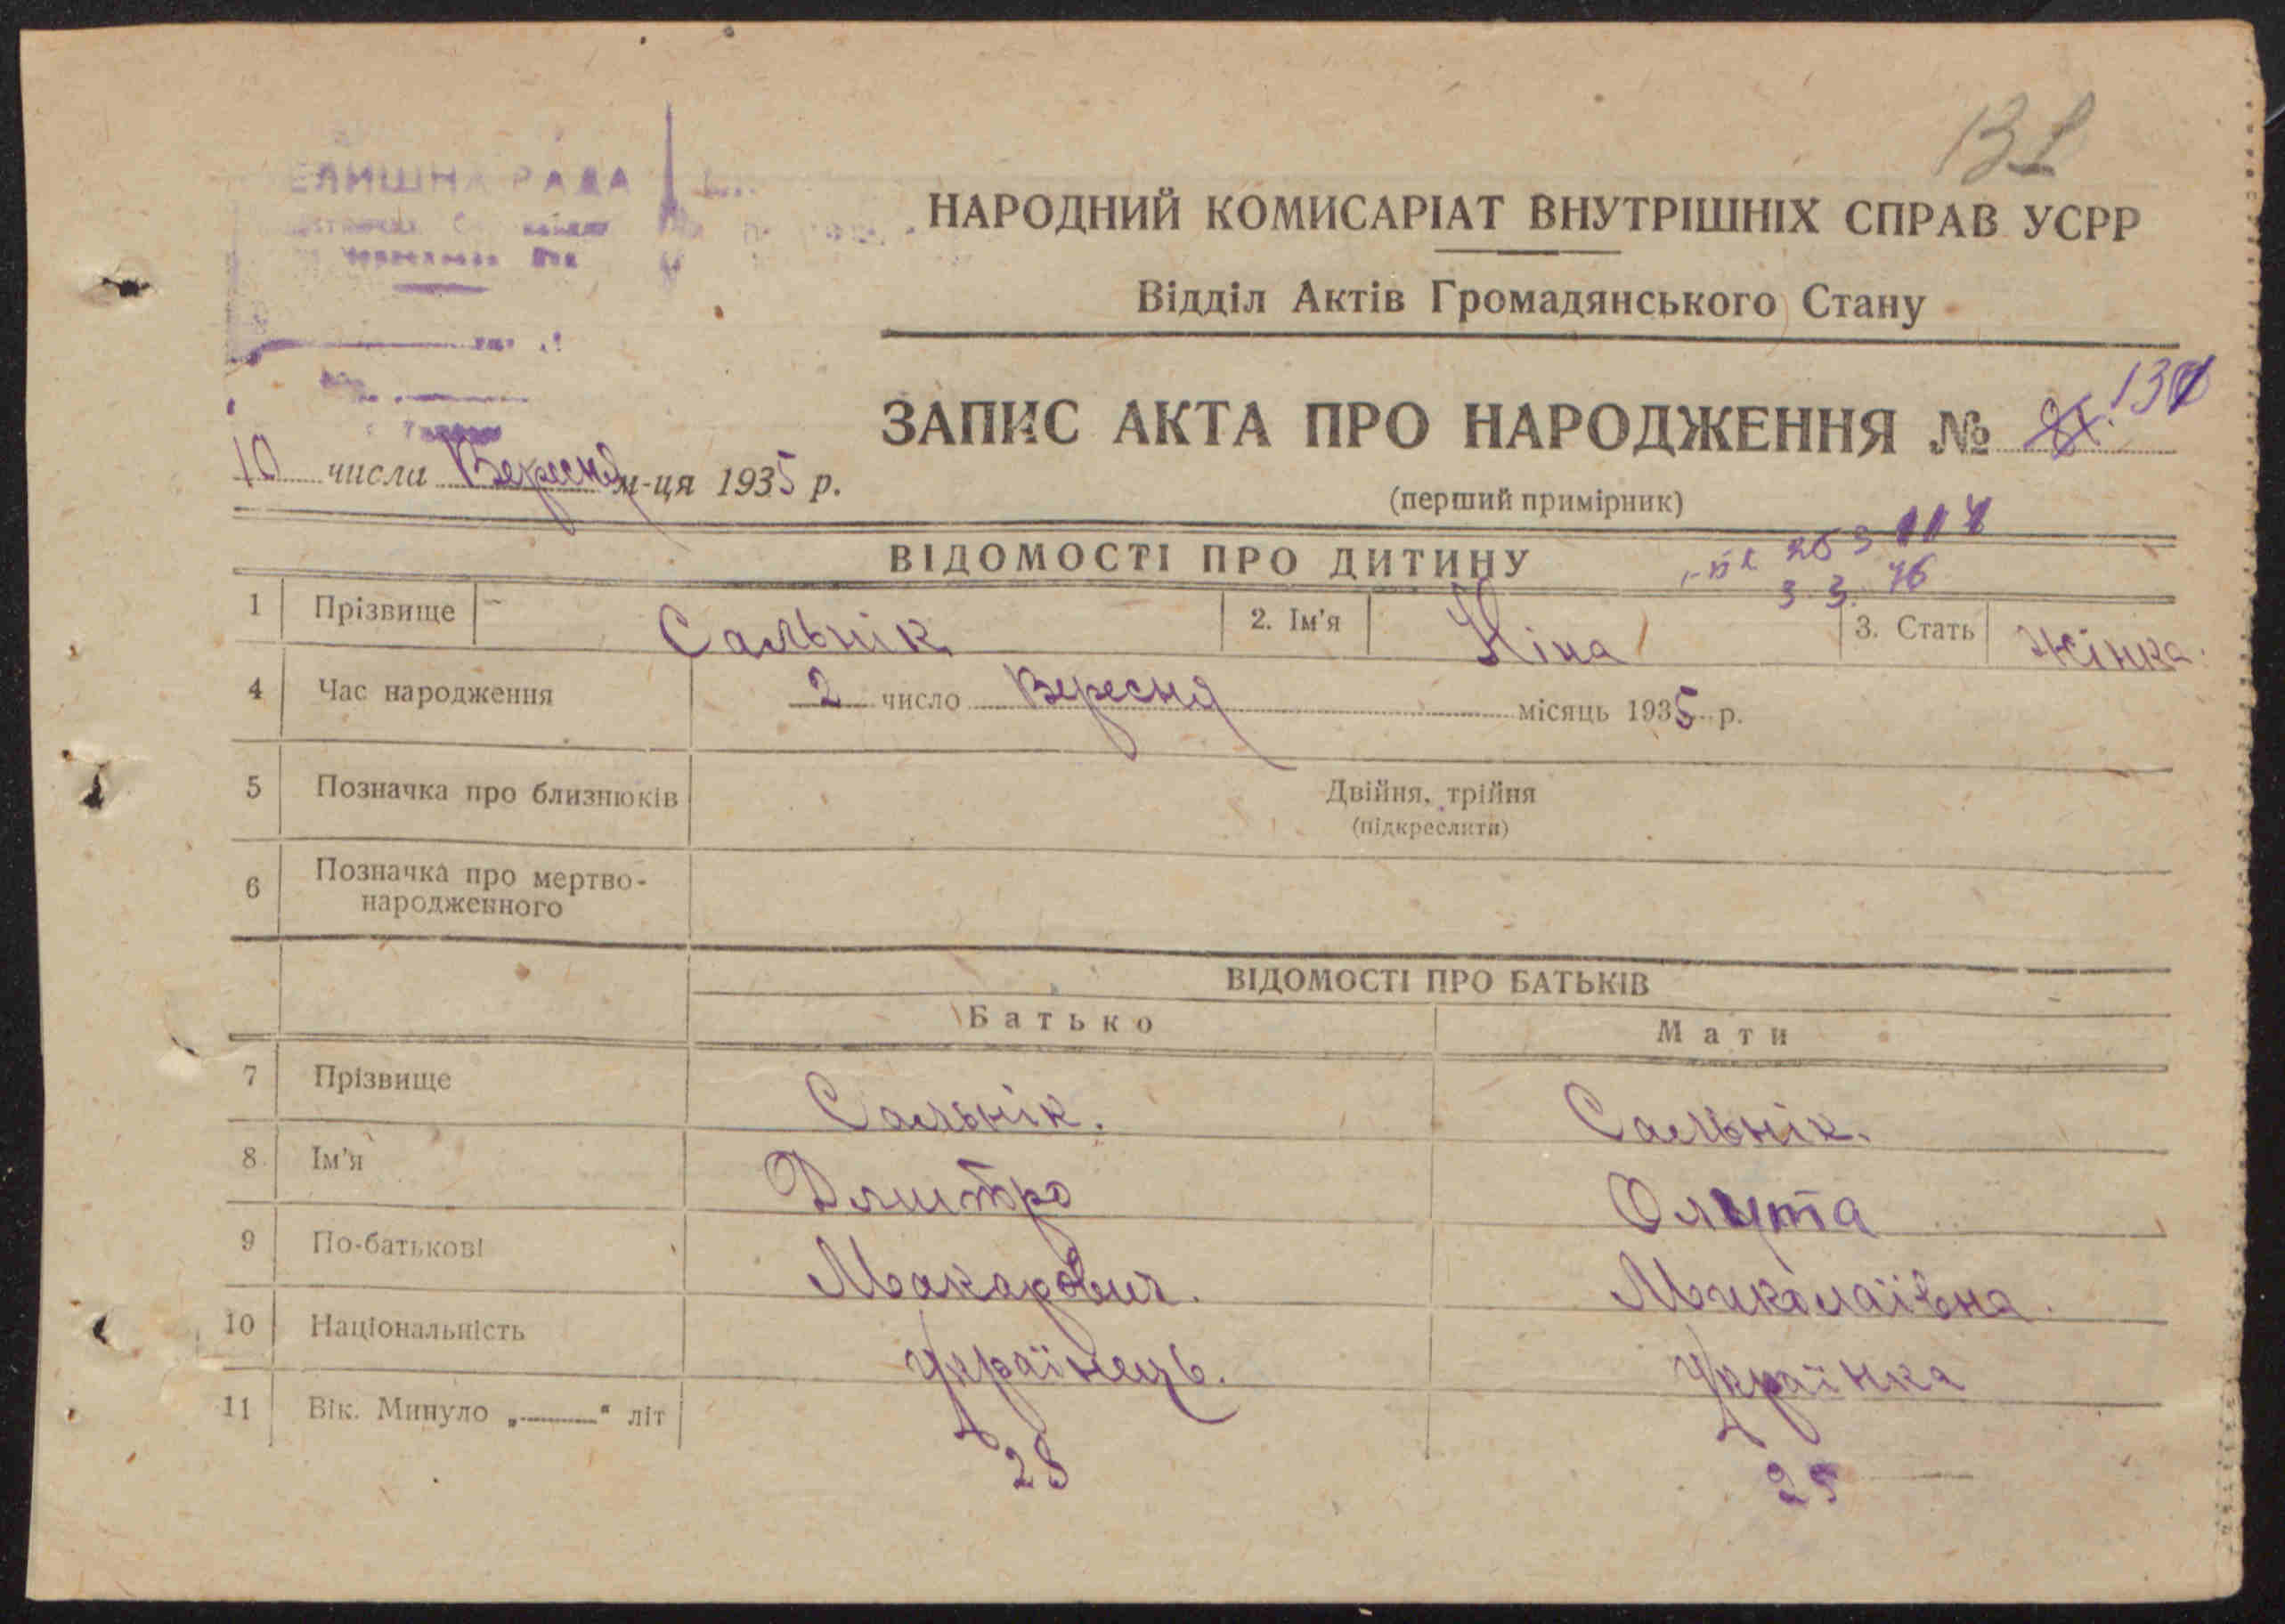 131
ЕЛИШНА РАДА
НАРОДНИЙ КОМИСАРІАТ ВНУТРІШНІХ СПРАВ УСРР
Відділ Актів Громадянського Стану
ЗАПИС АКТА ПРО НАРОДЖЕННЯ № 131
10 числа Вересня м-ця 1935 р.
(перший примірник)
ВІДОМОСТІ ПРО ДИТИНУ
3. 3. 76
1 Прізвище Сальнік 2. Ім'я Ніна 3. Стать Жінка.
4 Час народження 2 число Вересня місяць 1935 р.
5 Позначка про близнюків Двійня, трійня
(підкреслити)
6 Позначка про мертво-
народженного
ВІДОМОСТІ ПРО БАТЬКІВ
Батько Мати
7 Прізвище Сальнік. Сальнік.
8 Ім'я Дмитро
9 По-батькові Макарович. Миколаївна.
10 Національність Українець. Українка
11 Вік. Минуло „ “ літ 28 25